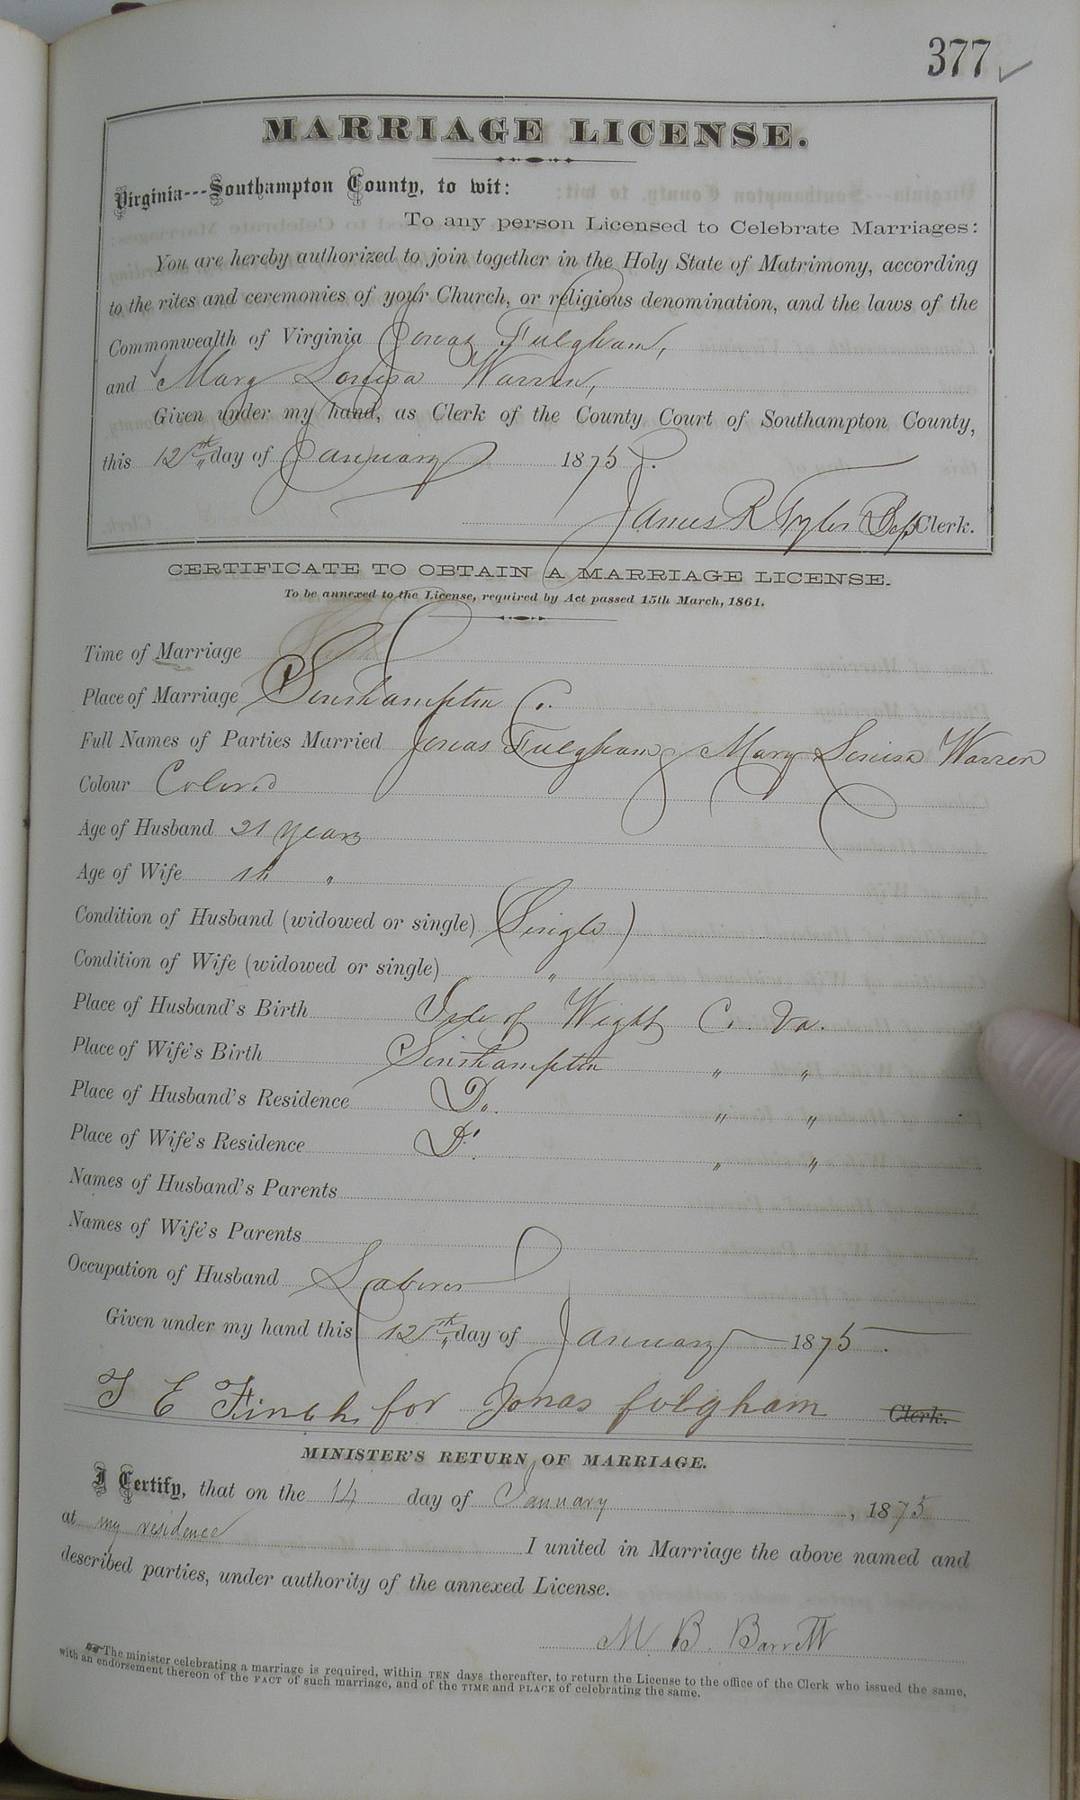 377 ✓
MARRIAGE LICENSE.
Virginia---Southampton County, to wit:
To any person Licensed to Celebrate Marriages:
You are hereby authorized to join together in the Holy State of Matrimony, according
to the rites and ceremonies of your Church, or religious denomination, and the laws of the
Commonwealth of Virginia Jonas Fulgham,
and Mary Louisa Warren,
Given under my hand, as Clerk of the County Court of Southampton County,
this 12th day of January 1875.
James R Tyler Dep Clerk.
CERTIFICATE TO OBTAIN A MARRIAGE LICENSE.
To be annexed to the License, required by Act passed 15th March, 1861.
Time of Marriage
Place of Marriage Southampton Co.
Full Names of Parties Married Jonas Fulgham & Mary Louisa Warren
Colour Colored
Age of Husband 21 years
Age of Wife "
Condition of Husband (widowed or single) (Single)
Condition of Wife (widowed or single) "
Place of Husband's Birth Isle of Wight C. Va.
Place of Wife's Birth Southampton " "
Place of Husband's Residence Do. " "
Place of Wife's Residence Do. " "
Names of Husband's Parents
Names of Wife's Parents
Occupation of Husband Laborer
Given under my hand this 12th day of January 1875.
T E Finch for Jonas fulgham Clerk.
MINISTER'S RETURN OF MARRIAGE.
I Certify, that on the 14 day of January, 1875
at my residence I united in Marriage the above named and
described parties, under authority of the annexed License.
M B. Barrett
The minister celebrating a marriage is required, within TEN days thereafter, to return the License to the office of the Clerk who issued the same,
with an endorsement thereon of the FACT of such marriage, and of the TIME and PLACE of celebrating the same.